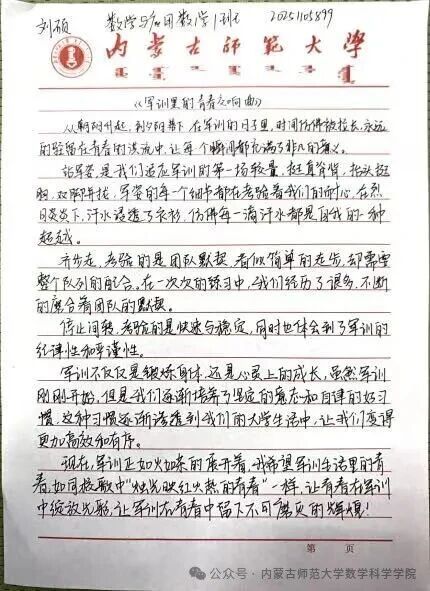 刘硕 数学与应用数学1班 20251105899
内蒙古师范大学
《军训里的青春交响曲》
从朝阳升起,到夕阳落下,在军训的日子里,时间仿佛被拉长,永远
的驻留在青春的洪流中,让每个瞬间都充满了非凡的意义。
站军姿,是我们适应军训的第一场较量,挺直脊背,抬头挺
胸,双脚并拢,军姿的每一个细节都在考验着我们的耐心,在烈
日炎炎下,汗水浸透了衣衫,仿佛每一滴汗水都是自我的一种
超越。
齐步走,考验的是团队默契,看似简单的走步,却需要
整个队列的配合,在一次次的练习中,我们经历了很多,不断
的磨合着团队的默契。
停止间转,考验的是快速与稳定,同时也体会到了军训的
纪律性和严谨性。
军训不仅仅是锻炼身体,还是心灵上的成长,虽然军训
刚刚开始,但是我们逐渐培养了坚定的意志和自律的好习
惯,这种习惯逐渐渗透到我们的大学生活中,让我们变得
更加高效和有序。
现在,军训正如火如荼的展开着,我希望军训生活里的青
春,如同校歌中“烛光映红火热的青春”一样,让青春在军训
中绽放光彩,让军训在青春中留下不可磨灭的辉煌!
第 页
公众号·内蒙古师范大学数学科学学院